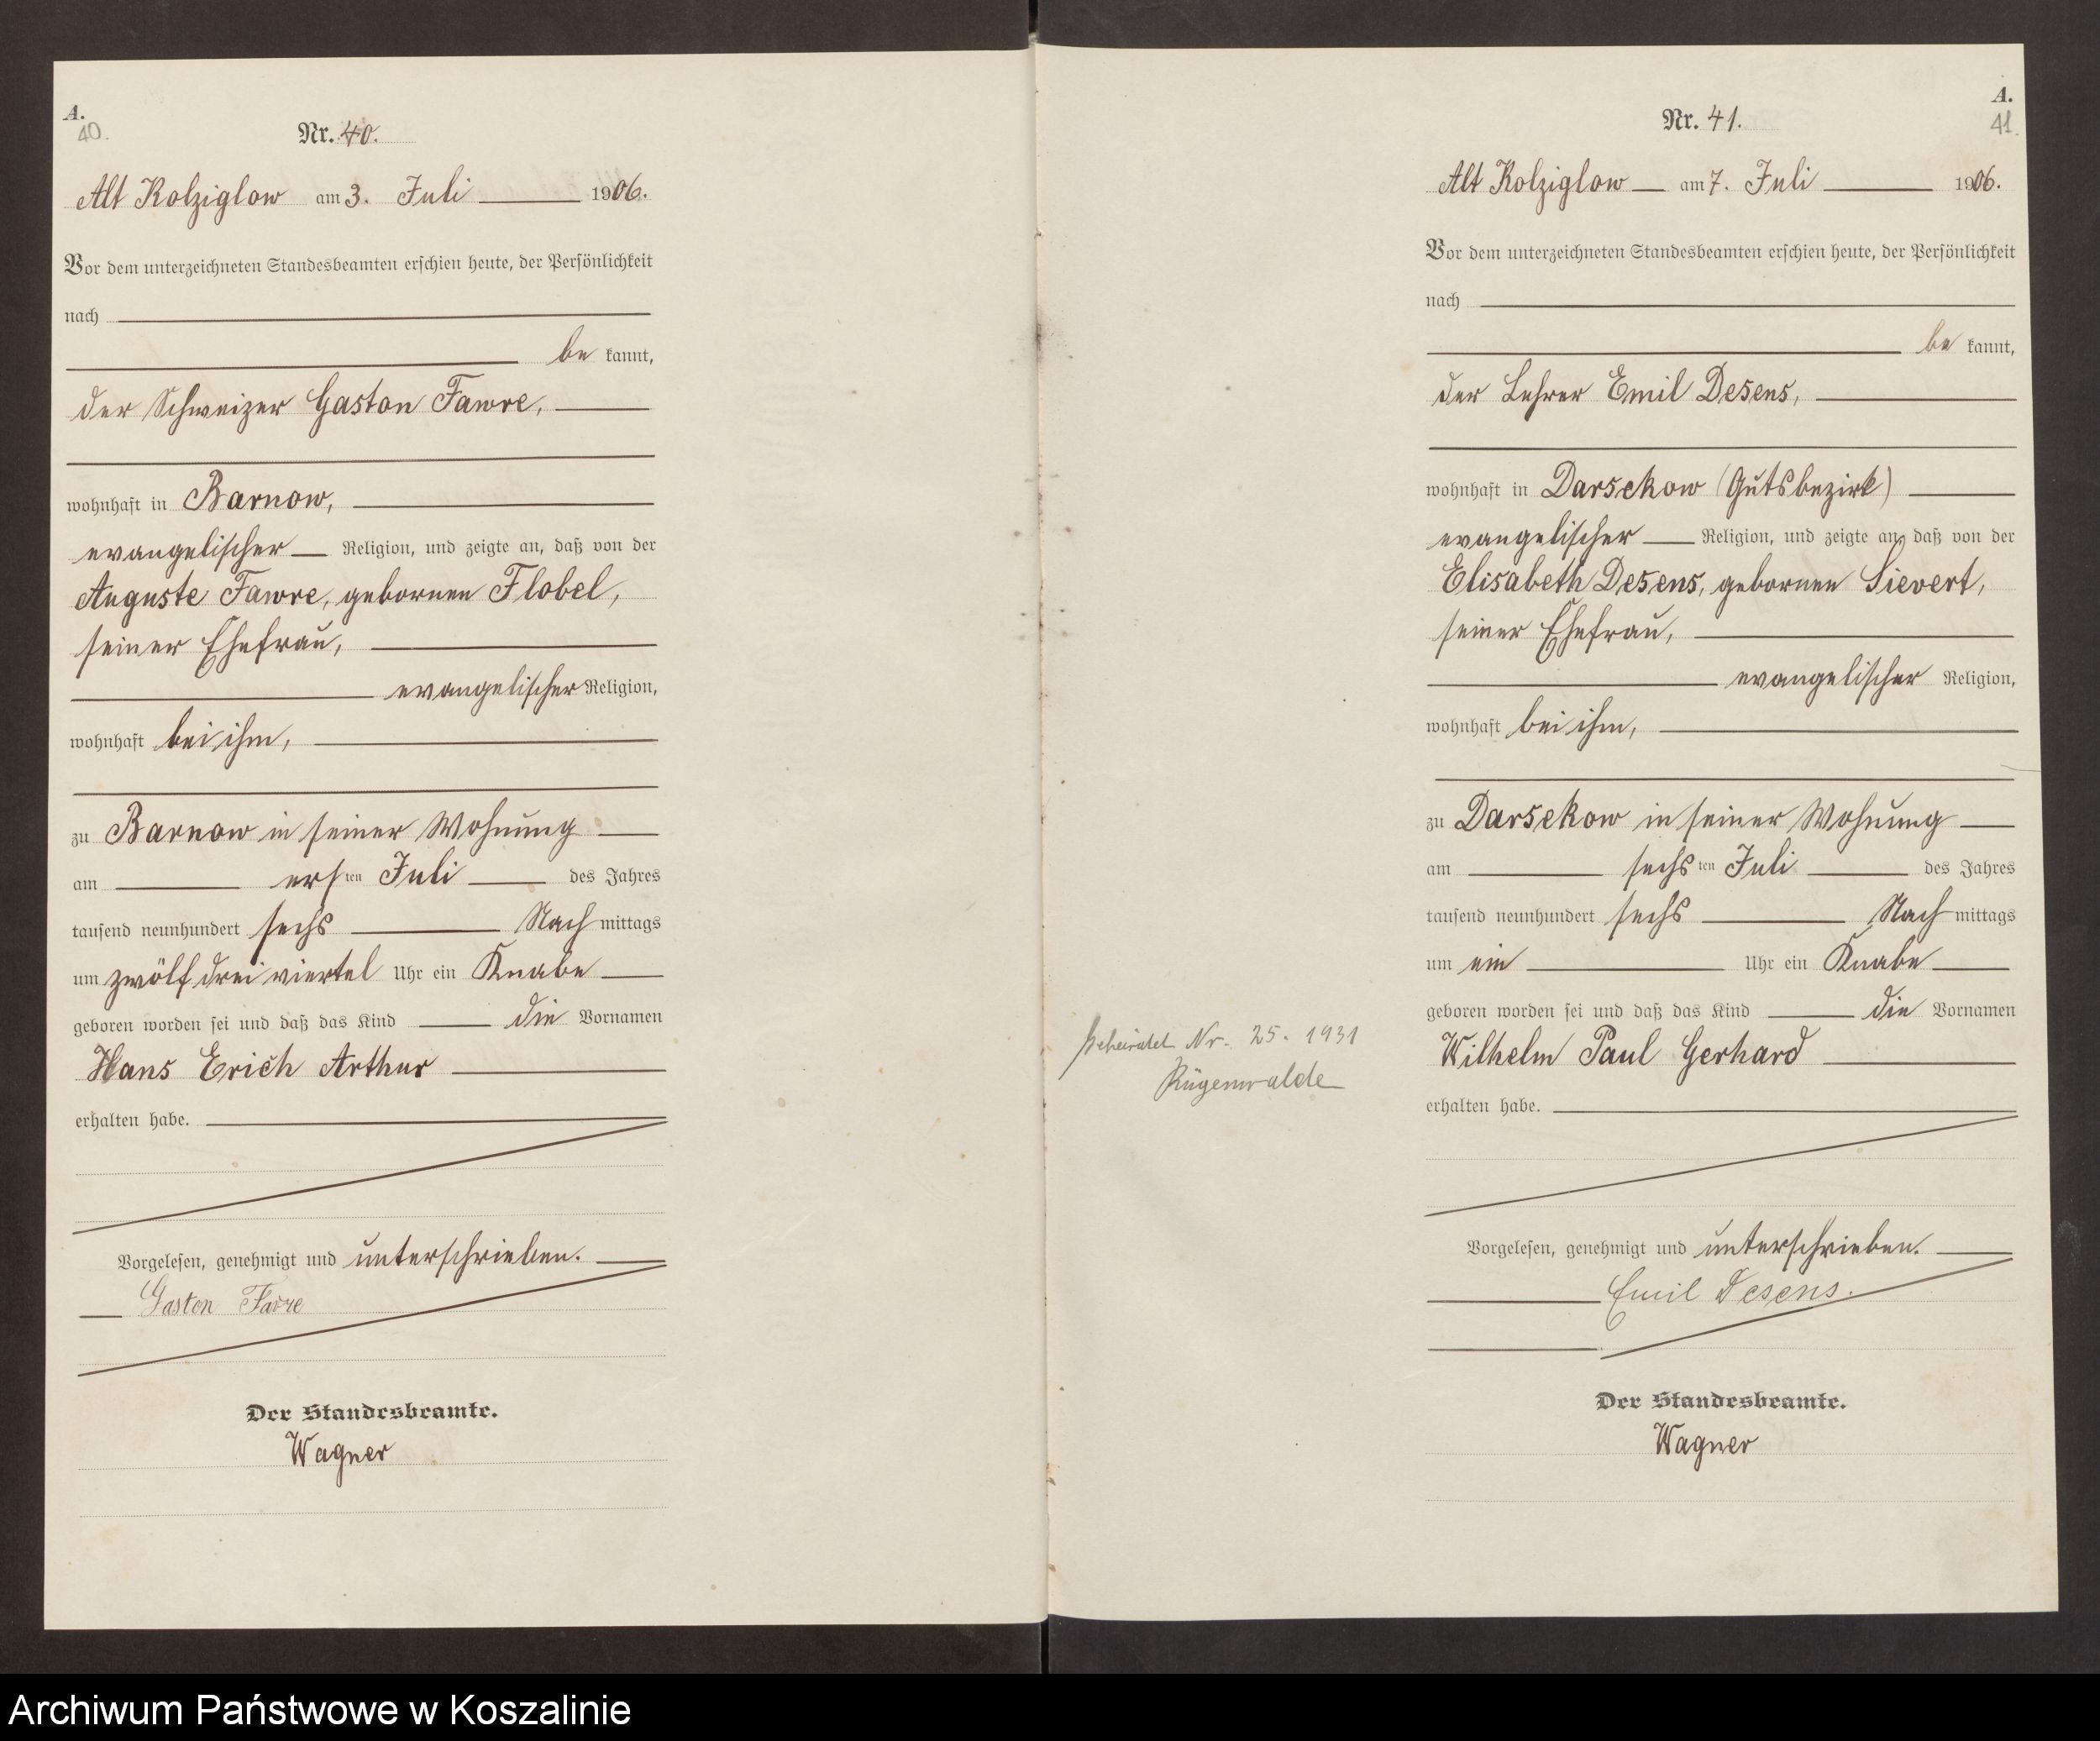 A.
40.
Nr. 40.
Alt Kolziglow am 3. Juli 1906.
Vor dem unterzeichneten Standesbeamten erschien heute, der Persönlichkeit
nach
be kannt,
der Schweizer Gaston Fawre,
wohnhaft in Barnow,
evangelischer Religion, und zeigte an, daß von der
Auguste Fawre, gebornen Flobel,
seiner Ehefrau,
evangelischer Religion,
wohnhaft bei ihm,
zu Barnow in seiner Wohnung
am ersten Juli des Jahres
tausend neunhundert sechs Nachmittags
um zwölf drei viertel Uhr ein Knabe
geboren worden sei und daß das Kind die Vornamen
Hans Erich Arthur
erhalten habe.
Vorgelesen, genehmigt und unterschrieben.
Gaston
Der Standesbeamte.
Wagner
A.
41.
Nr. 41.
Alt Kolziglow am 7. Juli 1906.
Vor dem unterzeichneten Standesbeamten erschien heute, der Persönlichkeit
nach
be kannt,
der Lehrer Emil Desens,
wohnhaft in Darsekow (Gutsbezirk)
evangelischer Religion, und zeigte an, daß von der
Elisabeth Desens, gebornen Sievert,
seiner Ehefrau,
evangelischer Religion,
wohnhaft bei ihm,
zu Darsekow in seiner Wohnung
am sechsten Juli des Jahres
tausend neunhundert sechs Nachmittags
um ein Uhr ein Knabe
geboren worden sei und daß das Kind die Vornamen
Wilhelm Paul Gerhard
erhalten habe.
Vorgelesen, genehmigt und unterschrieben.
Emil Desens.
Der Standesbeamte.
Wagner
Nr. 25. 1931
Rügenwalde
Archiwum Państwowe w Koszalinie